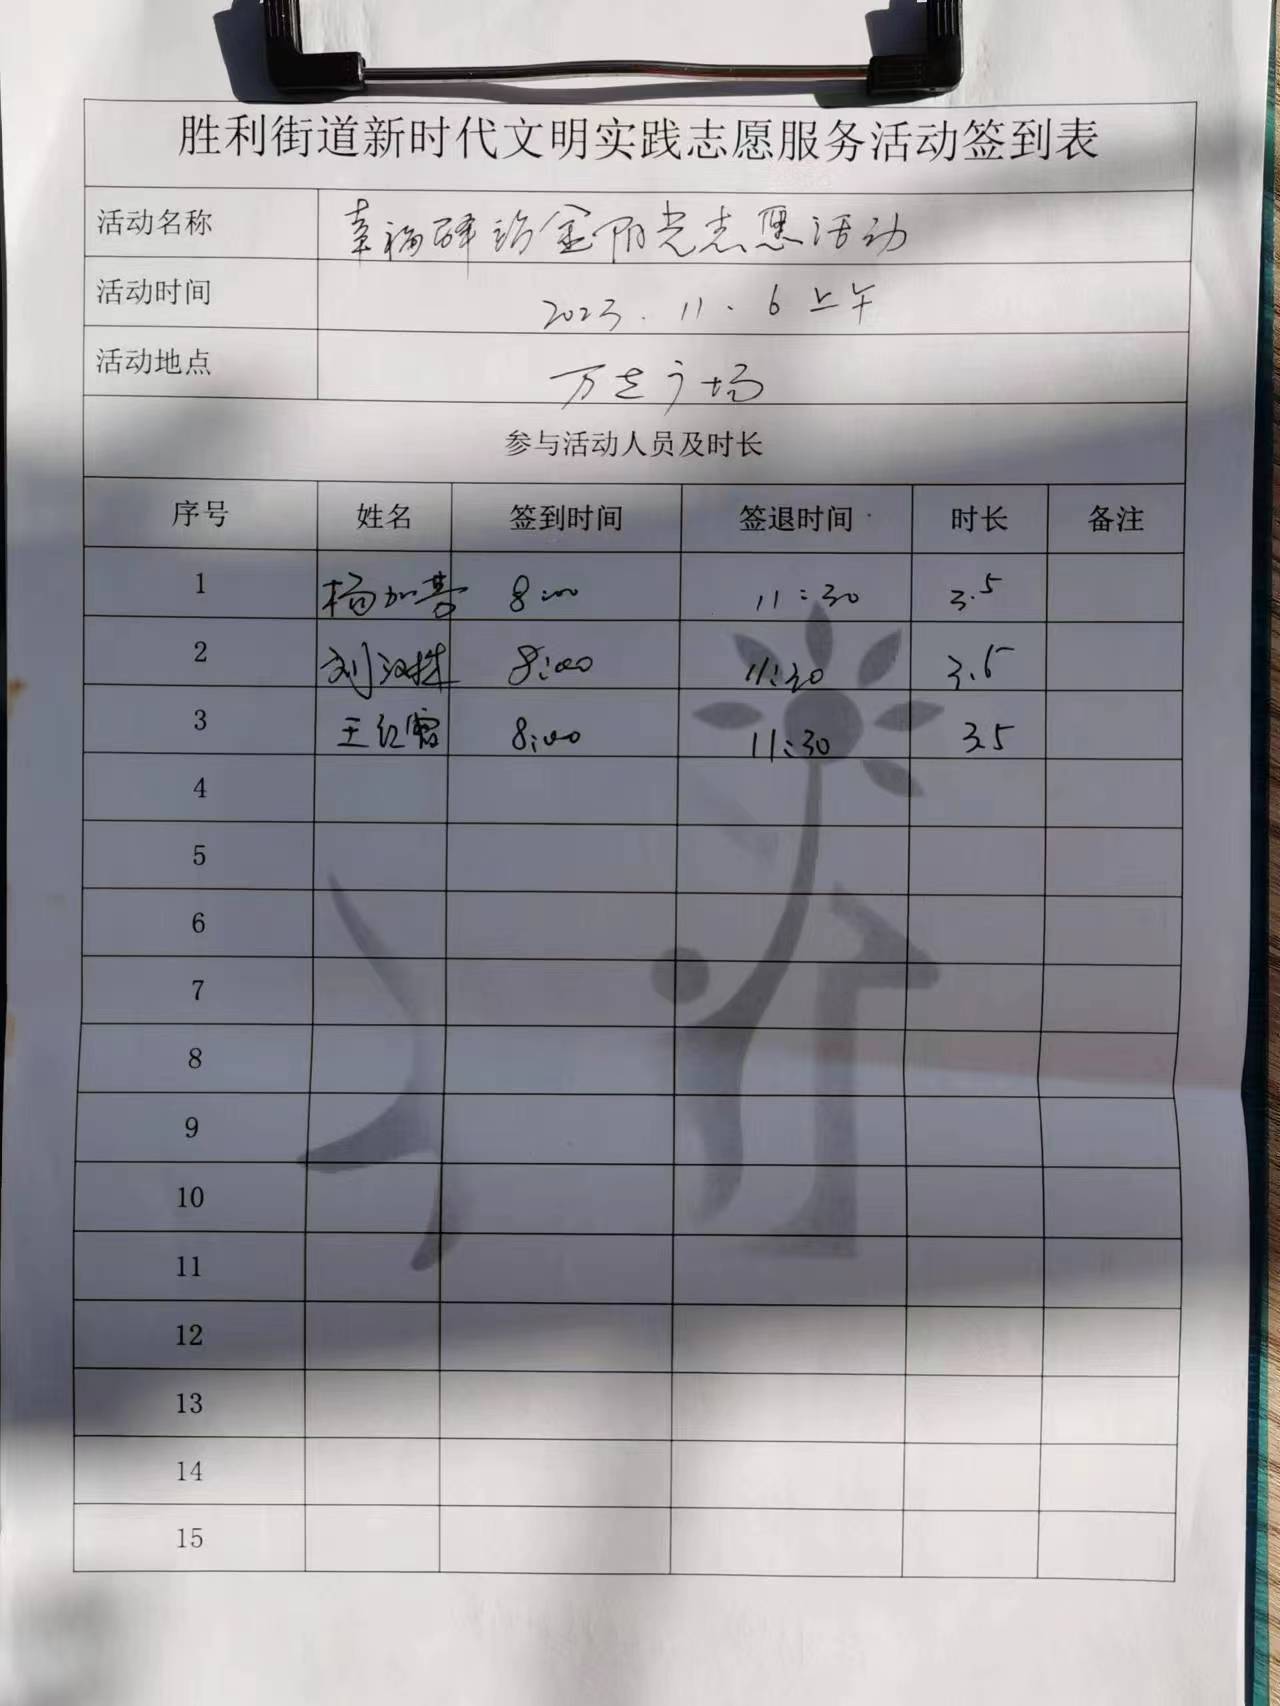 胜利街道新时代文明实践志愿服务活动签到表
活动名称 幸福驿站金阳光志愿活动
活动时间 2023.11.6上午
活动地点 万达广场
参与活动人员及时长
序号 姓名 签到时间 签退时间 时长 备注
1 杨加 8:00 11:30 3.5
2 刘汉 8:00 11:30 3.5
3 王红霞 8:00 11:30 3.5
4
5
6
7
8
9
10
11
12
13
14
15